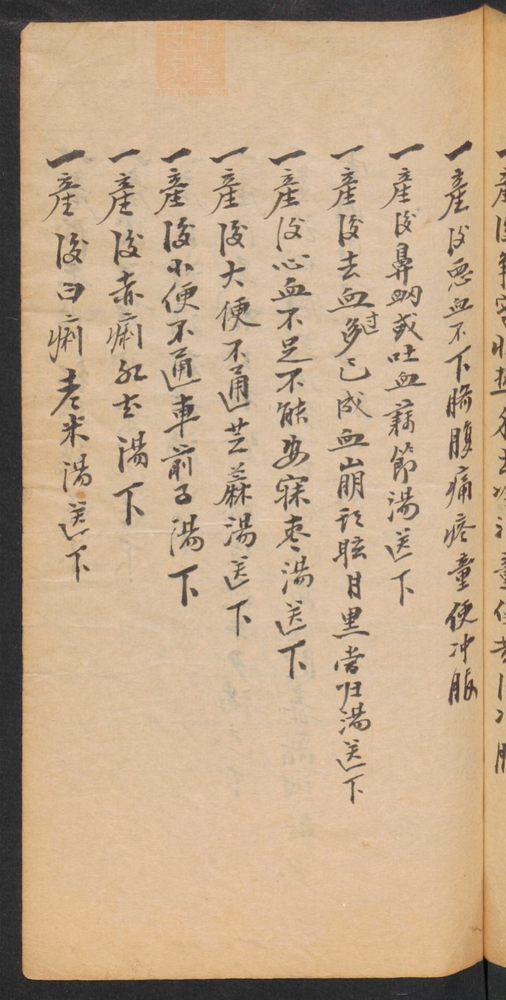 一產後惡血不下臍腹痛疼童便冲服
一產後鼻衂或吐血藕節湯送下
一產後去血過多已成血崩頭眩目黑當归湯送下
一產後心血不足不能安寐枣湯送下
一產後大便不通芝蔴湯送下
一產後小便不通車前子湯下
一產後赤痢红花湯下
一產後白痢老米湯送下